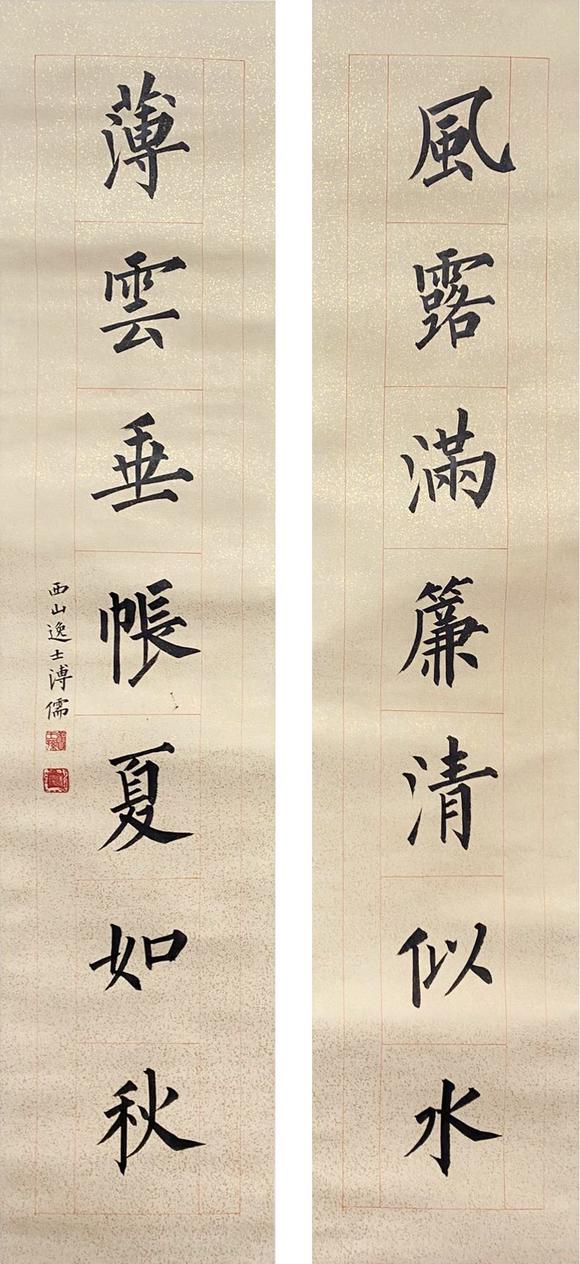 風露滿簾清似水
薄雲垂帳夏如秋
西山逸士溥儒